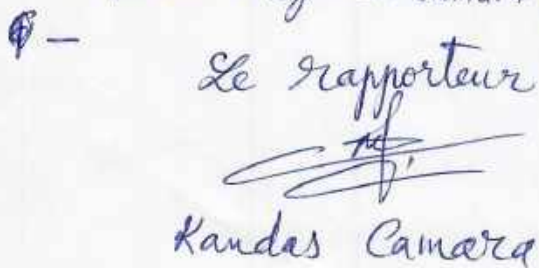 Le rapporteur
Kandas Camara